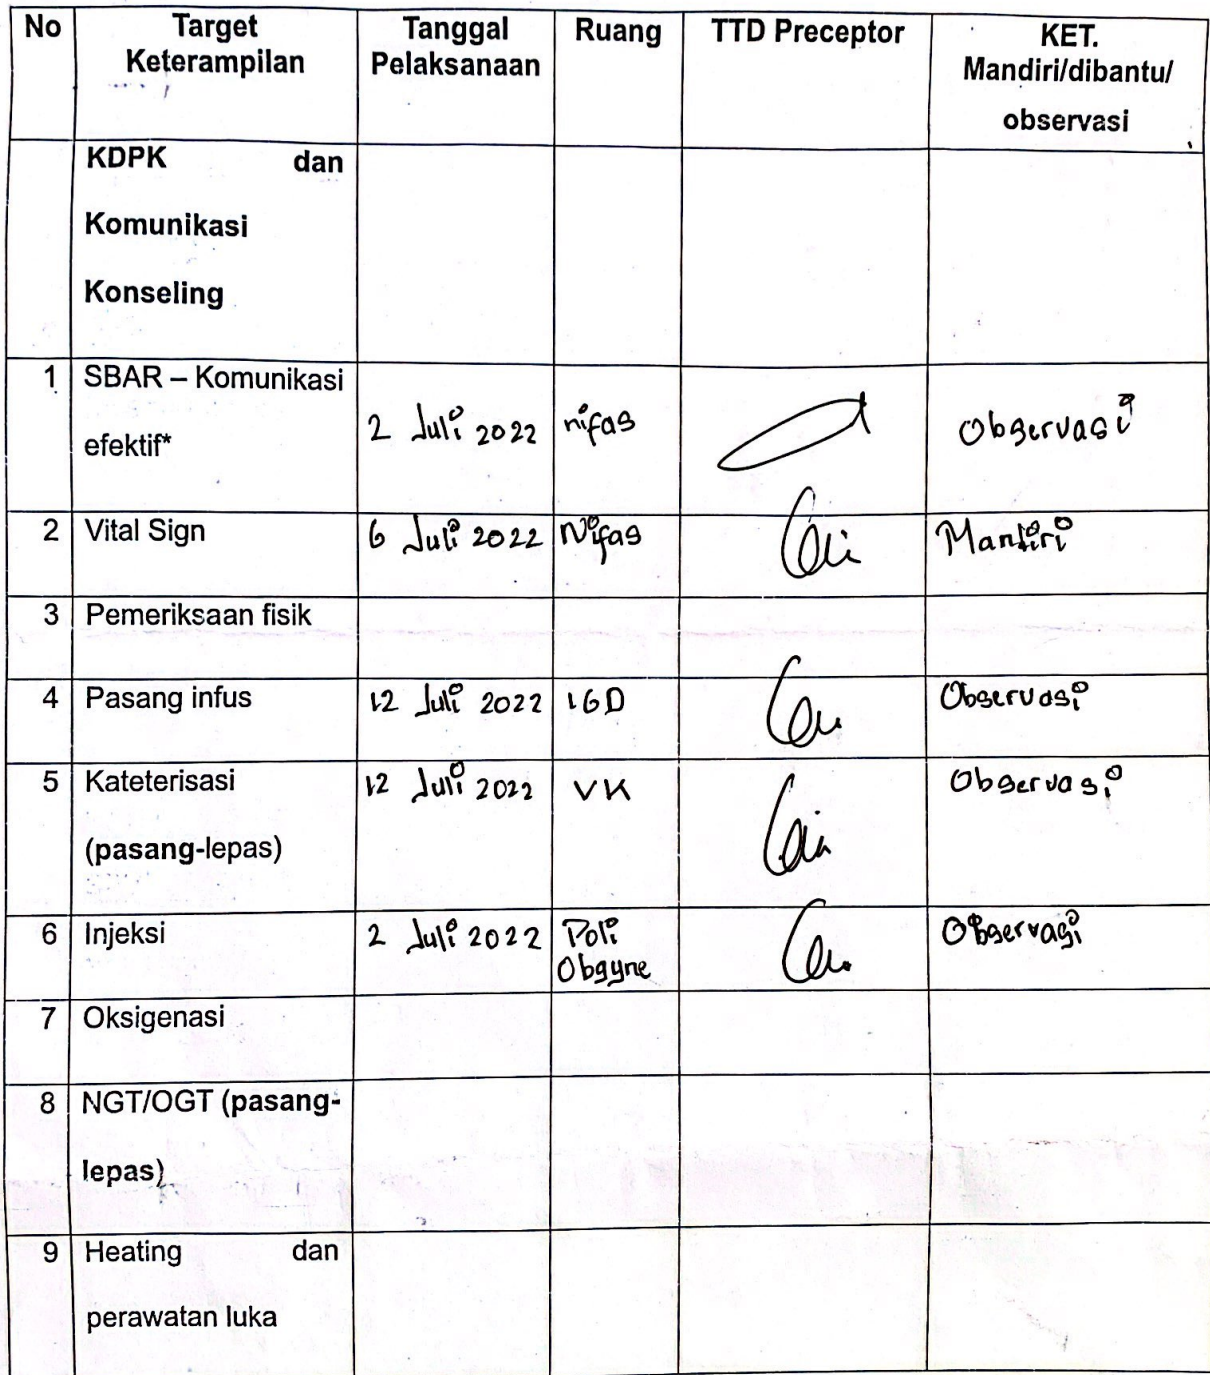 No Target Keterampilan Tanggal Pelaksanaan Ruang TTD Preceptor KET. Mandiri/dibantu/ observasi
KDPK dan
Komunikasi
Konseling
1 SBAR – Komunikasi efektif* 2 Juli 2022 nifas Observasi
2 Vital Sign 6 Juli 2022 Nifas Mandiri
3 Pemeriksaan fisik
4 Pasang infus 12 Juli 2022 IGD Observasi
5 Kateterisasi (pasang-lepas) 12 Juli 2022 VK Observasi
6 Injeksi 2 Juli 2022 Poli Obgyne Observasi
7 Oksigenasi
8 NGT/OGT (pasang-
lepas)
9 Heating dan
perawatan luka